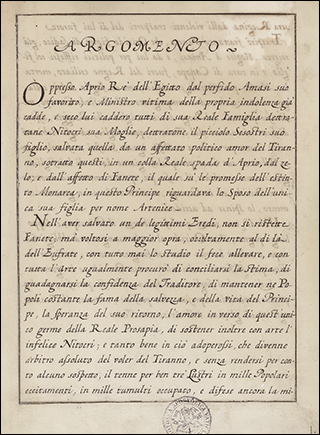 ARGOMENTO ~
Oppresso Aprio Rè dell'Egitto dal perfido Amasi suo
favorito, e Ministro vitima della propria indolenza già
cadde, e seco lui caddero tutti di sua Reale Famiglia detrat
tane Nitocri sua Moglie, detrattone il picciolo Sesostri suo
figlio, salvata quella da un affettato politico amor del Tiran
no, sotratto questi, in un colla Reale spada d'Aprio, dal ze
lo, e dall'affetto di Fanete, il quale su le promesse dell'estin
to Monarca, in questo Principe riguardava lo Sposo dell'uni
ca sua figlia per nome Artenice ~
Nell'aver salvato un de legittimi Eredi, non si ristette
Fanete, mà voltosi a maggior opra, occultamente al di là
dell'Eufrate, con tutto mai lo studio il fece allevare, e con
tutta l'arte egualmente procurò di conciliarsi la stima, di
guadagnarsi la confidenza del Traditore, di mantener ne Po
poli costante la fama della salvezza, e della vita del Princi
pe, la speranza del suo ritorno, l'amore in verso di quest'uni
co germe della Reale Prosapia, di sostener inoltre con arte l'
infelice Nitocri; e tanto bene in ciò adoperossi, che divenne
arbitro assoluto del voler del Tiranno, e senza rendersi per con
to alcuno sospetto, il tenne per ben tre Lustri in mille Popolari
eccitamenti, in mille tumulti occupato, e difese ancora la mi-